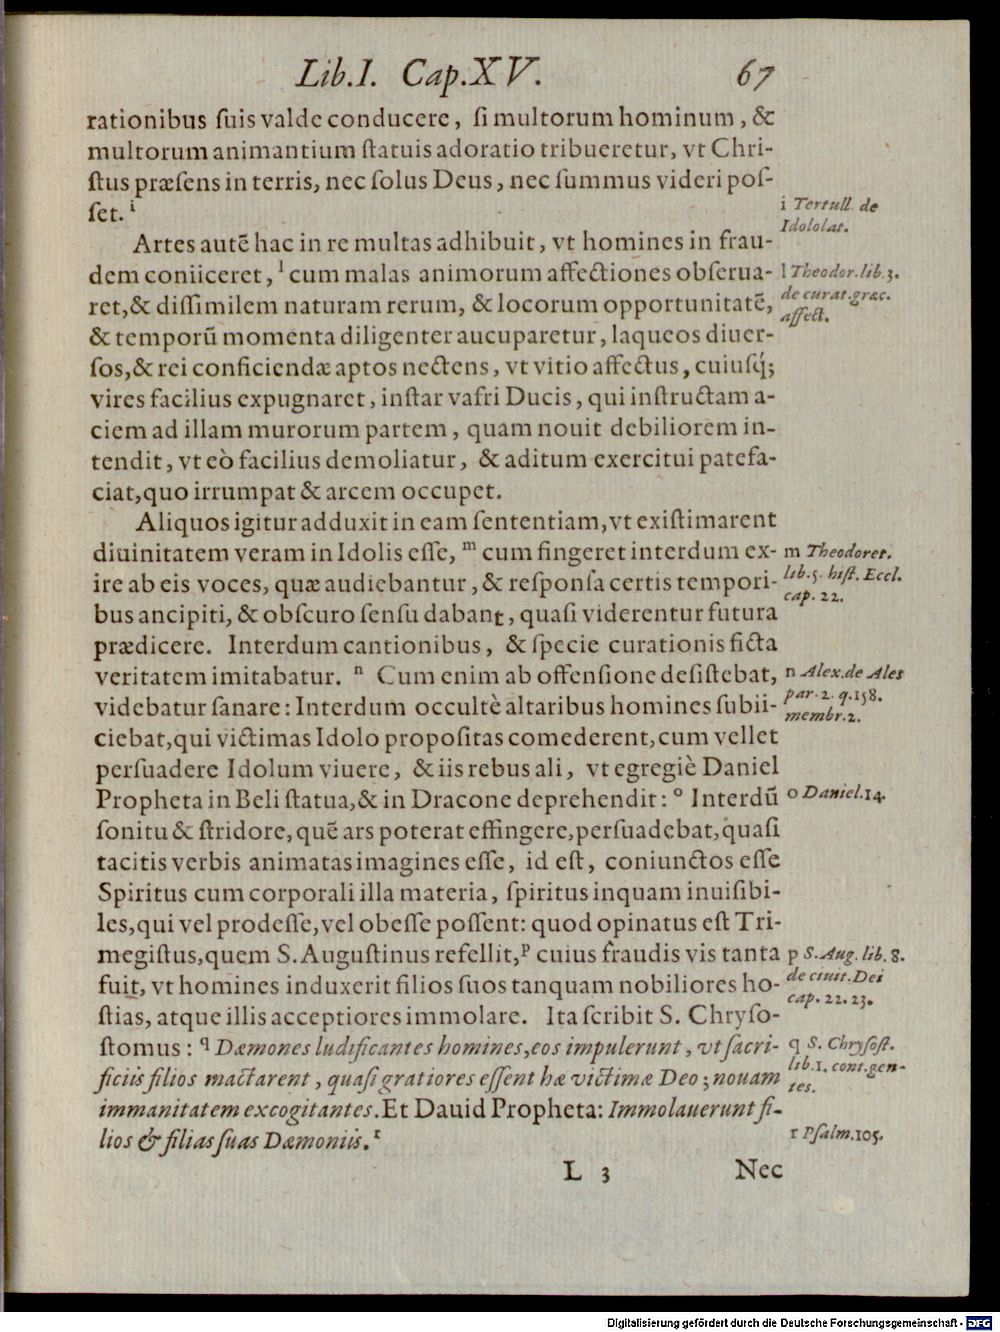 Lib. I. Cap. XV. 67
rationibus ſuis valde conducere, ſi multorum hominum, &
multorum animantium ſtatuis adoratio tribueretur, vt Chri-
ſtus præſens in terris, nec ſolus Deus, nec ſummus videri poſ-
ſet. i
i Tertull. de
Idololat.
Artes autē hac in re multas adhibuit, vt homines in frau-
dem coniiceret, l cum malas animorum affectiones obſerua-
ret, & diſſimilem naturam rerum, & locorum opportunitatē,
& temporū momenta diligenter aucuparetur, laqueos diuer-
ſos, & rei conficiendæ aptos nectens, vt vitio affectus, cuiuſq́;
vires facilius expugnaret, inſtar vafri Ducis, qui inſtructam a-
ciem ad illam murorum partem, quam nouit debiliorem in-
tendit, vt eò facilius demoliatur, & aditum exercitui patefa-
ciat, quo irrumpat & arcem occupet.
l Theodor. lib. 3.
de curat. græc.
affect.
Aliquos igitur adduxit in eam ſententiam, vt exiſtimarent
diuinitatem veram in Idolis eſſe, m cum fingeret interdum ex-
ire ab eis voces, quæ audiebantur, & reſponſa certis tempori-
bus ancipiti, & obſcuro ſenſu dabant, quaſi viderentur futura
prædicere. Interdum cantionibus, & ſpecie curationis ficta
veritatem imitabatur. n Cum enim ab offenſione deſiſtebat,
videbatur ſanare: Interdum occultè altaribus homines ſubii-
ciebat, qui victimas Idolo propoſitas comederent, cum vellet
perſuadere Idolum viuere, & iis rebus ali, vt egregiè Daniel
Propheta in Beli ſtatua, & in Dracone deprehendit: o Interdū
ſonitu & ſtridore, quē ars poterat effingere, perſuadebat, quaſi
tacitis verbis animatas imagines eſſe, id eſt, coniunctos eſſe
Spiritus cum corporali illa materia, ſpiritus inquam inuiſibi-
les, qui vel prodeſſe, vel obeſſe poſſent: quod opinatus eſt Tri-
megiſtus, quem S. Auguſtinus refellit, p cuius fraudis vis tanta
fuit, vt homines induxerit filios ſuos tanquam nobiliores ho-
ſtias, atque illis acceptiores immolare. Ita ſcribit S. Chryſo-
ſtomus: q Dæmones ludificantes homines, eos impulerunt, vt ſacri-
ficiis filios mactarent, quaſi gratiores eſſent hæ victimæ Deo; nouam
immanitatem excogitantes. Et Dauid Propheta: Immolauerunt fi-
lios & filias ſuas Dæmoniis. r
m Theodoret.
lib. 5. hiſt. Eccl.
cap. 22.
n Alex. de Ales
par. 2. q. 158.
membr. 2.
o Daniel. 14.
p S. Aug. lib. 8.
de ciuit. Dei
cap. 22. 23.
q S. Chryſoſt.
lib. 1. cont. gen-
tes.
r Pſalm. 105.
L 3 Nec
Digitalisierung gefördert durch die Deutsche Forschungsgemeinschaft - DFG